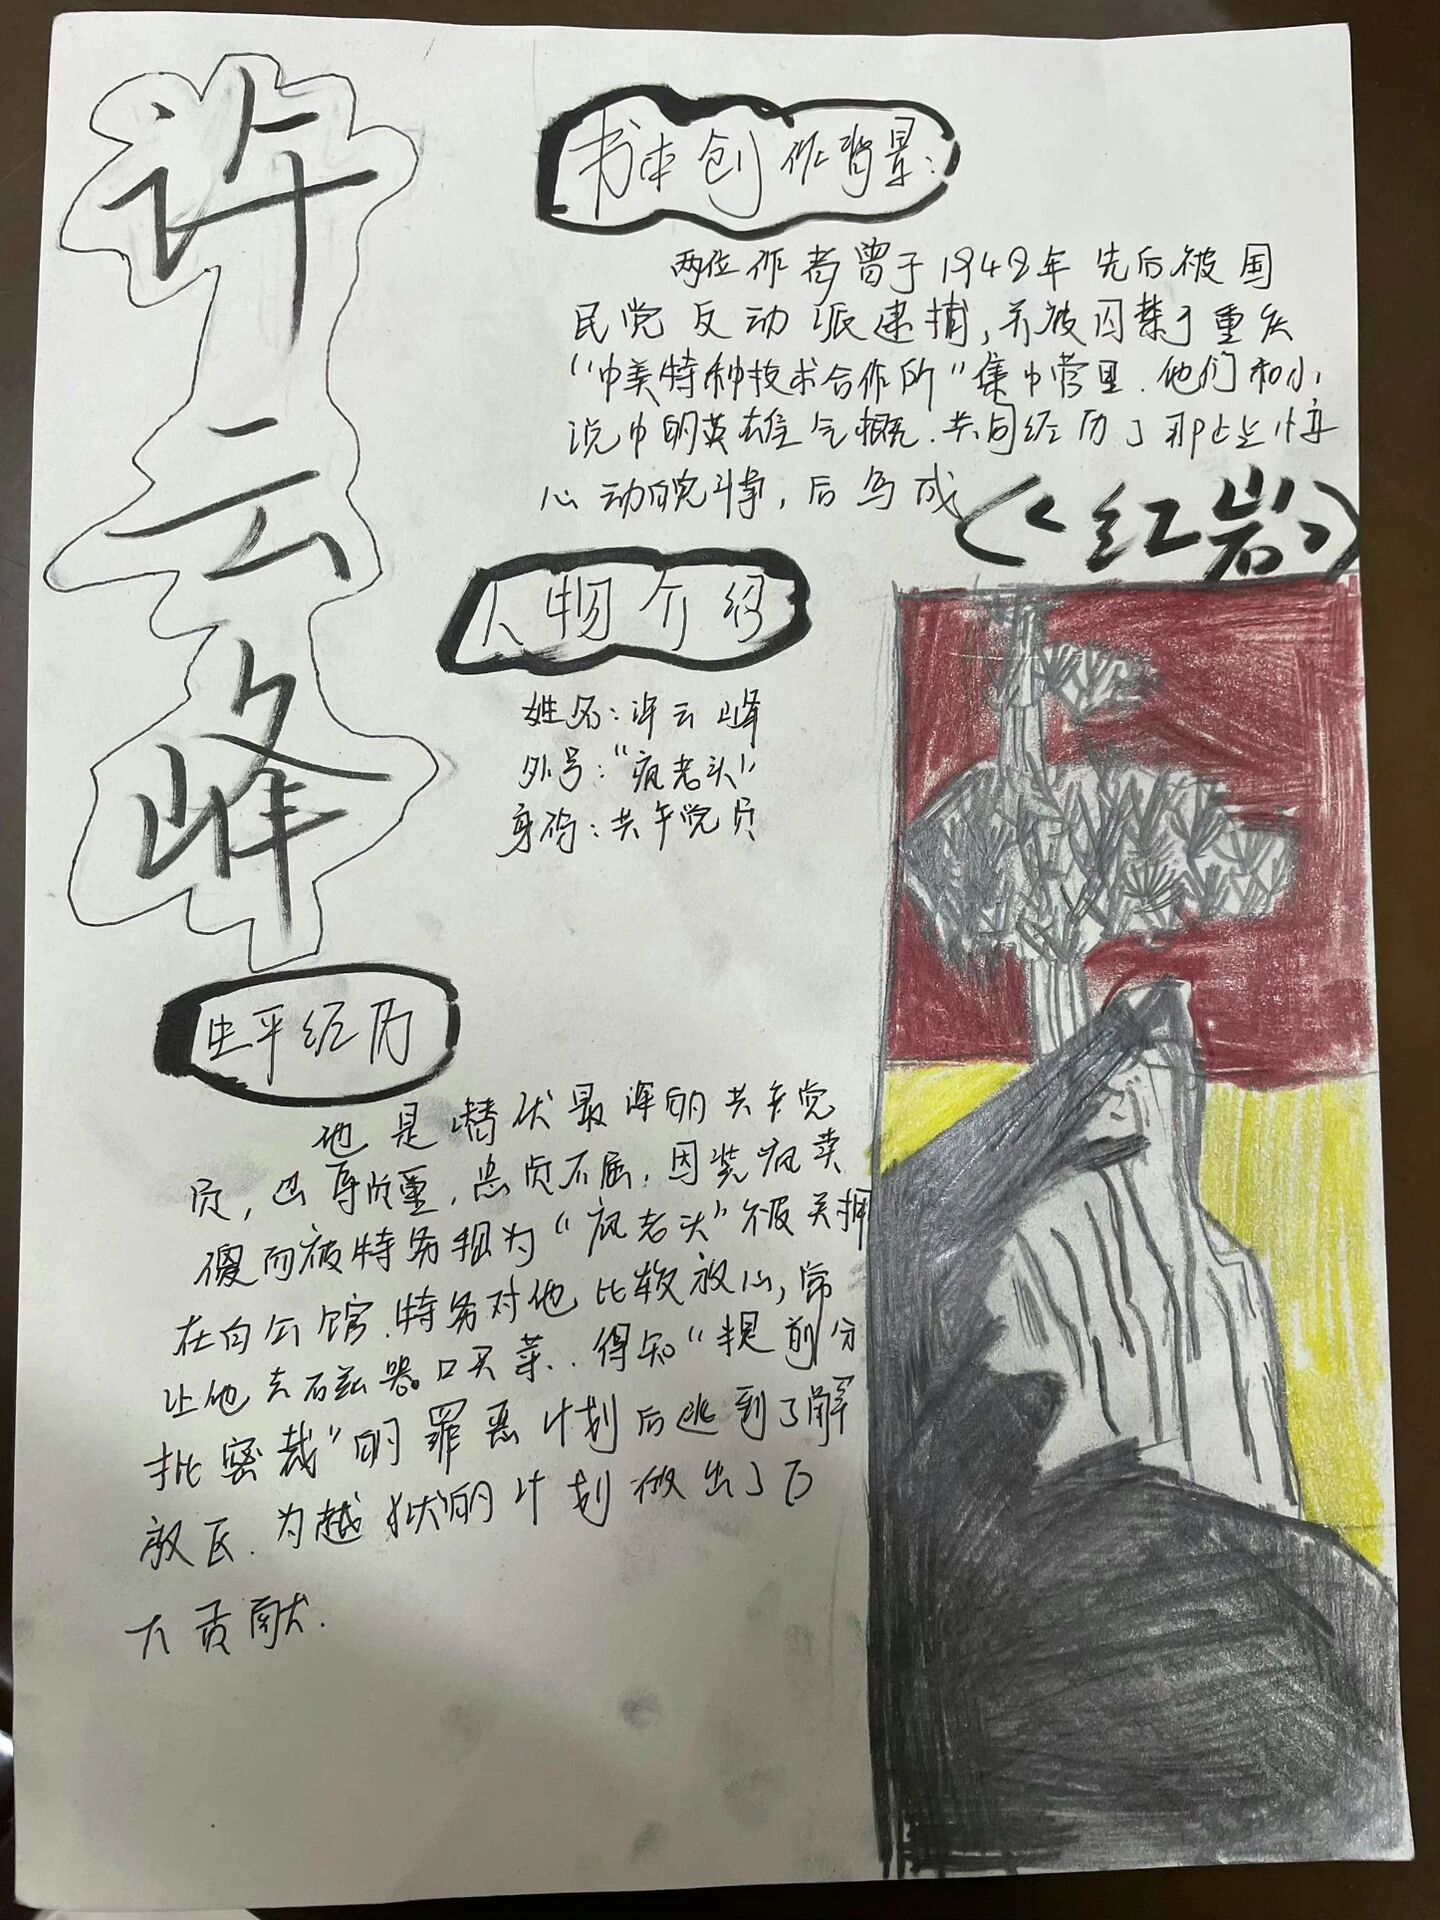 许云峰
书本创作背景：
两位作者曾于1948年先后被国
民党反动派逮捕，并被囚禁于重庆
“中美特种技术合作所”集中营里.他们和小
说中的英雄气概.共同经历了那些惊
心动魄斗争，后写成《红岩》
人物介绍
姓名：许云峰
外号：“疯老头”
身份：共产党员
生平经历
他是潜伏最深的共产党
员，忍辱负重，忠贞不屈.因装疯卖
傻而被特务视为“疯老头”被关押
在白公馆.特务对他比较放心，常
让他去石磁器口买菜..得知“提前分
批密裁”的罪恶计划后逃到了解
放区.为越狱的计划做出了巨
大贡献.